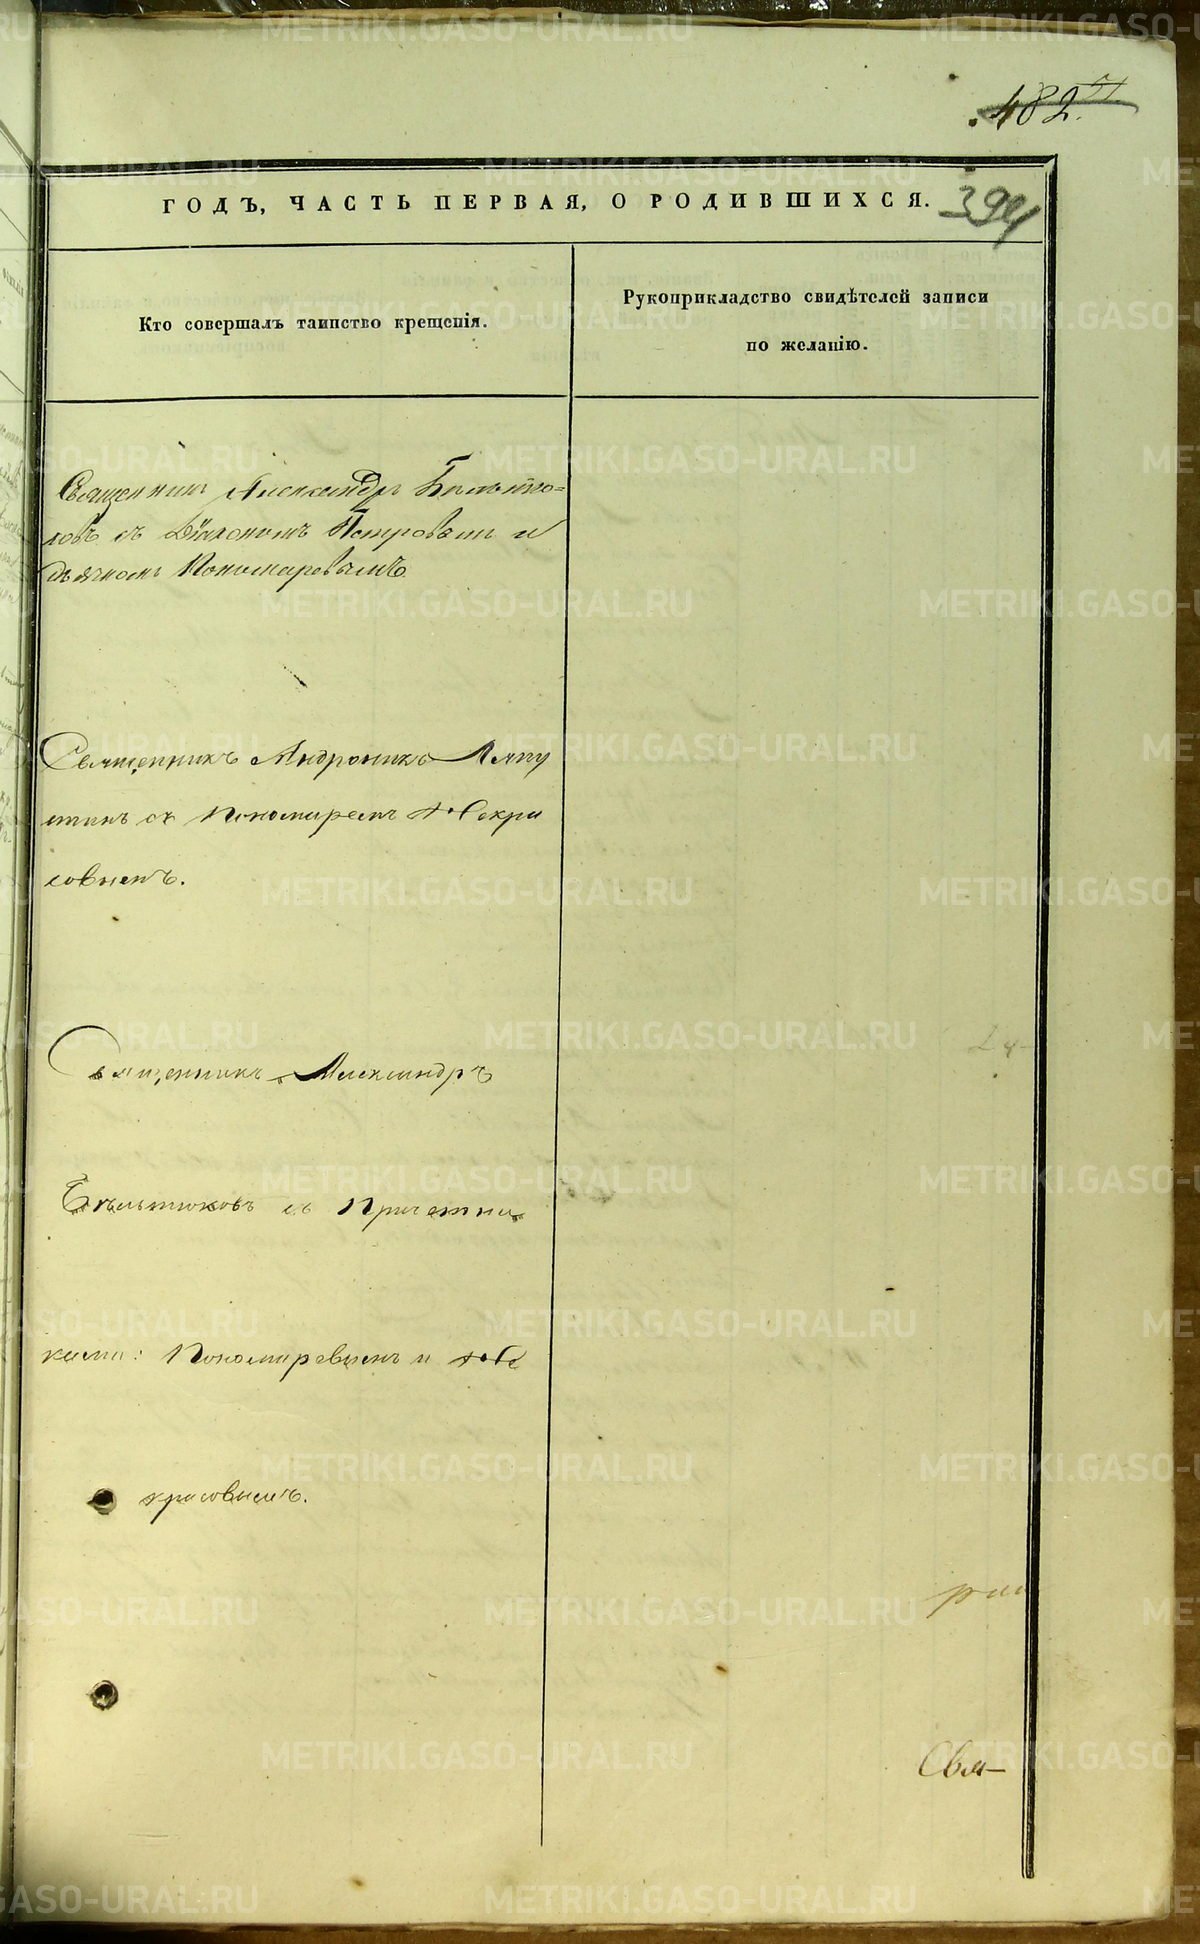 482.
ГОДЪ, ЧАСТЬ ПЕРВАЯ, О РОДИВШИХСЯ.
394
Кто совершалъ таинство крещенія.
Рукоприкладство свидѣтелей записи
по желанію.
Священникъ Александръ Бѣльтю=
ковъ съ Діакономъ Петровымъ и
дьячкомъ Пономаревымъ
Священникъ Андроникъ Ляпу
стинъ съ Пономаремъ Некра
совымъ.
Священникъ Александръ
Бѣльтюковъ съ Причетни
ками: Пономаревымъ и Не
красовымъ.
Свя-
METRIKI.GASO-URAL.RU